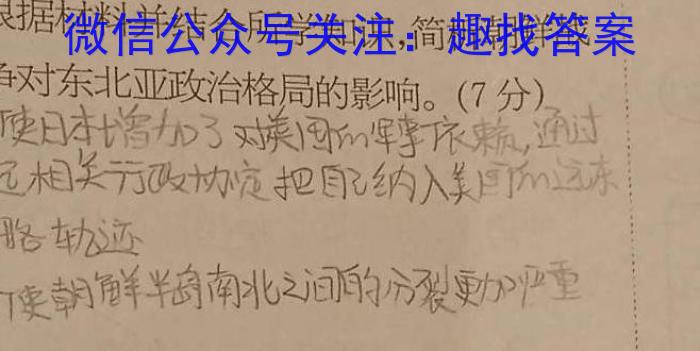 据材料并结合所学知识,简
微信公众号关注：趣找答案
争对东北亚政治格局的影响。(7分)
使日本增加了对美国的军事依赖,通过
相关行政协定把自己纳入美国的远东
略轨迹
使朝鲜半岛南北之间的分裂更加严重